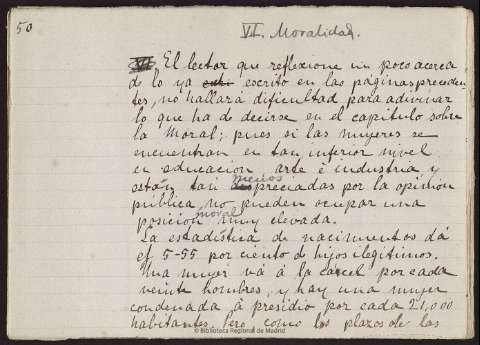 50
VI. Moralidad.
VI. El lector que reflexione un poco acerca
de lo ya escrito en las páginas preceden-
tes, no hallará dificultad para adivinar
lo que ha de decirse en el capitulo sobre
la Moral; pues si las mujeres se
encuentran en tan inferior nivel
en educacion arte é industria y
están tan menospreciadas por la opinión
pública no pueden ocupar una
posición moral muy elevada.
La estadística de nacimientos dá
el 5-55 por ciento de hijos ilegitimos.
Una mujer vá á la carcel por cada
veinte hombres, y hay una mujer
condenada á presidio por cada 21,000
habitantes, pero como los plazos de las
© Biblioteca Regional de Madrid